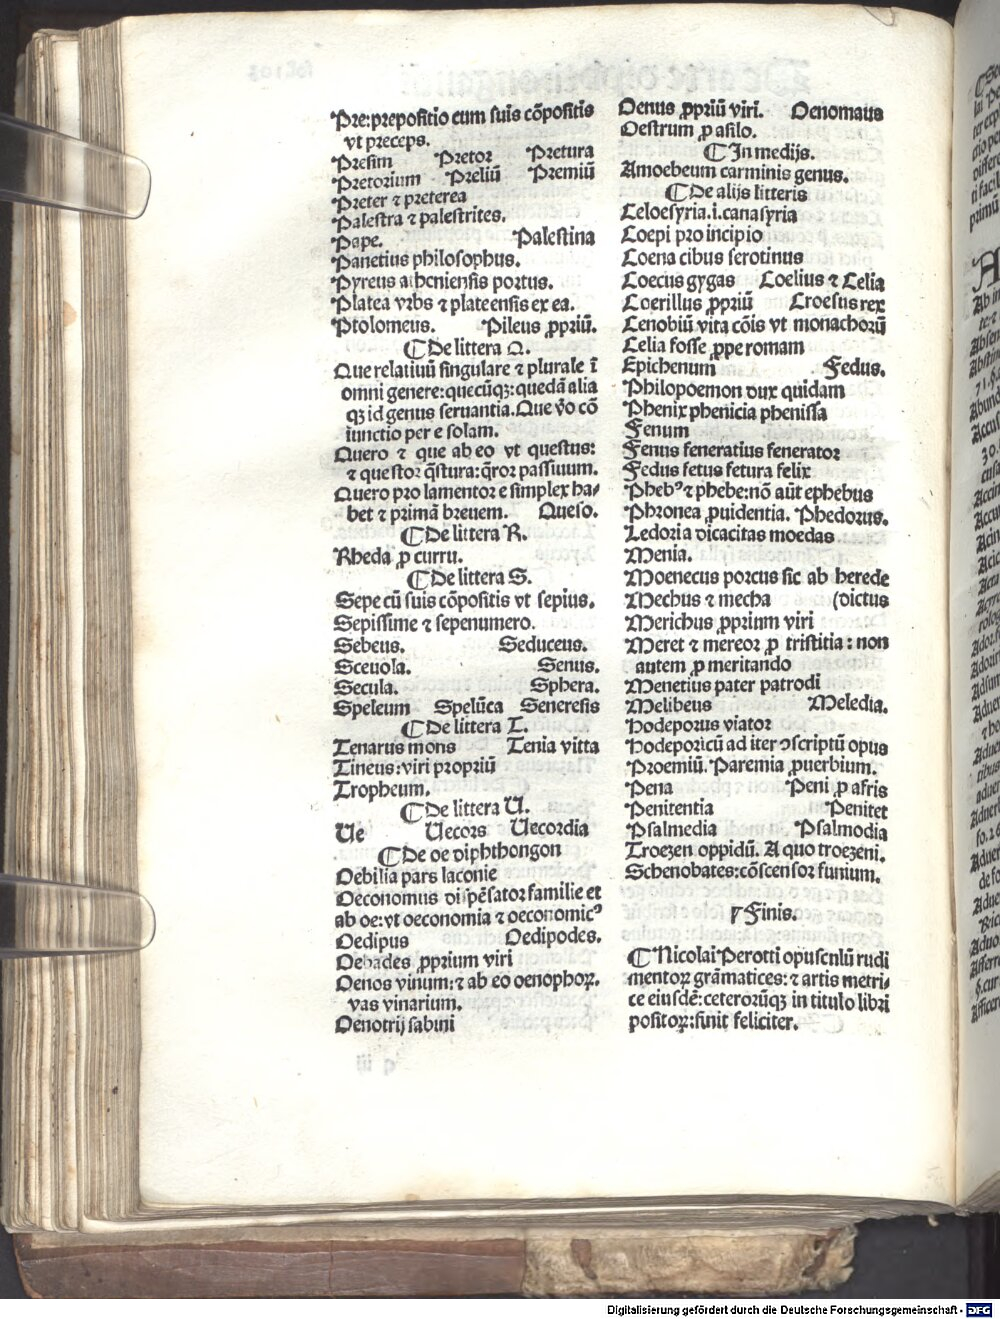 Pre:prepositio cum suis cōpositis
vt preceps.
Presim Pretor Pretura
Pretorium Preliū Premiū
Preter ⁊ preterea
Palestra ⁊ palestrites.
Pape. Palestina
Panetius philosophus.
Pyreus atheniensis portus.
Platea vrbs ⁊ plateensis ex ea.
Ptolomeus. Pileus ꝓpriū.
¶ De littera Q.
Que relatiuū singulare ⁊ plurale ī
omni genere:quecūqꝫ:quedā alia
qꝫ id genus seruantia. Que v̄o cō
iunctio per e solam.
Quero ⁊ que ab eo vt questus:
⁊ questor q̄stura:q̄ror passiuum.
Quero pro lamentor e simplex ha/
bet ⁊ primā breuem. Queso.
¶ De littera R.
Rheda ꝓ curru.
¶ De littera S.
Sepe cū suis cōpositis vt sepius.
Sepissime ⁊ sepenumero.
Sebeus. Seduceus.
Sceuola. Senus.
Secula. Sphera.
Speleum Spelūca Seneresis
¶ De littera T.
Tenarus mons Tenia vitta
Tineus:viri propriū
Tropheum.
¶ De littera U.
Ue Uecors Uecordia
¶ De oe diphthongon
Oebilia pars laconie
Oeconomus dispēsator familie et
ab oe:vt oeconomia ⁊ oeconomicꝰ
Oedipus Oedipodes.
Oebades ꝓprium viri
Oenos vinum:⁊ ab eo oenophoꝝ.
vas vinarium.
Oenotrij sabini
Oenus ꝓpriū viri. Oenomaus
Oestrum ꝓ asilo.
¶ In medijs.
Amoebeum carminis genus.
¶ De alijs litteris
Celoesyria.i.cana syria
Coepi pro incipio
Coena cibus serotinus
Coecus gygas Coelius ⁊ Celia
Coerillus ꝓpriū Croesus rex
Cenobiū vita cōis vt monachorū
Celia fosse ꝓpe romam
Epichenum Fedus.
Philopoemon dux quidam
Phenix phenicia phenissa
Fenum
Fenus feneratius fenerator
Fedus fetus fetura felix
Phebꝰ ⁊ phebe:nō aūt ephebus
Phronea ꝓuidentia. Phedorus.
Ledoria dicacitas moedas
Menia.
Moenecus porcus sic ab herede
Mechus ⁊ mecha (dictus
Merichus ꝓprium viri
Meret ⁊ mereor ꝓ tristitia: non
autem ꝓ meritando
Menetius pater patrodi
Melibeus Meledia.
hodeporus viator
hodeporicū ad iter ↄscriptū opus
Proemiū. Paremia ꝓuerbium.
Pena Peni ꝓ afris
Penitentia Penitet
Psalmedia Psalmodia
Troezen oppidū. A quo troezeni.
Schenobates:cōscensor funium.
Finis.
¶ Nicolai Perotti opusculū rudi
mentoꝝ grāmatices: ⁊ artis metri-
ce eiusdē:ceterorūqꝫ in titulo libri
positoꝝ:finit feliciter.
Digitalisierung gefördert durch die Deutsche Forschungsgemeinschaft - DFG